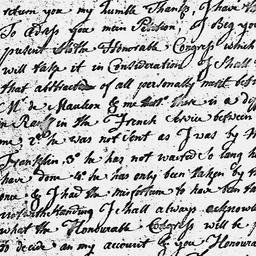 return you my humble Thanks, I have t
To adress you mein Petition, I Beg you
present to the Honourable Congress which
will take it in Consideration I shall
that abstraction of all personally merit be
Mr. de Mauduit & me that there is a d
in Rank in the French Service between
me 2° he was not sent as I was by M
Franklin, 3° he has not waited so long ha
have done 4° he has only been taken by th
once; & I had the misfortune to have been ta
notwithstanding I shall always acknowl
what the Honourable Congress will be p
to decide on my account & you Honoura